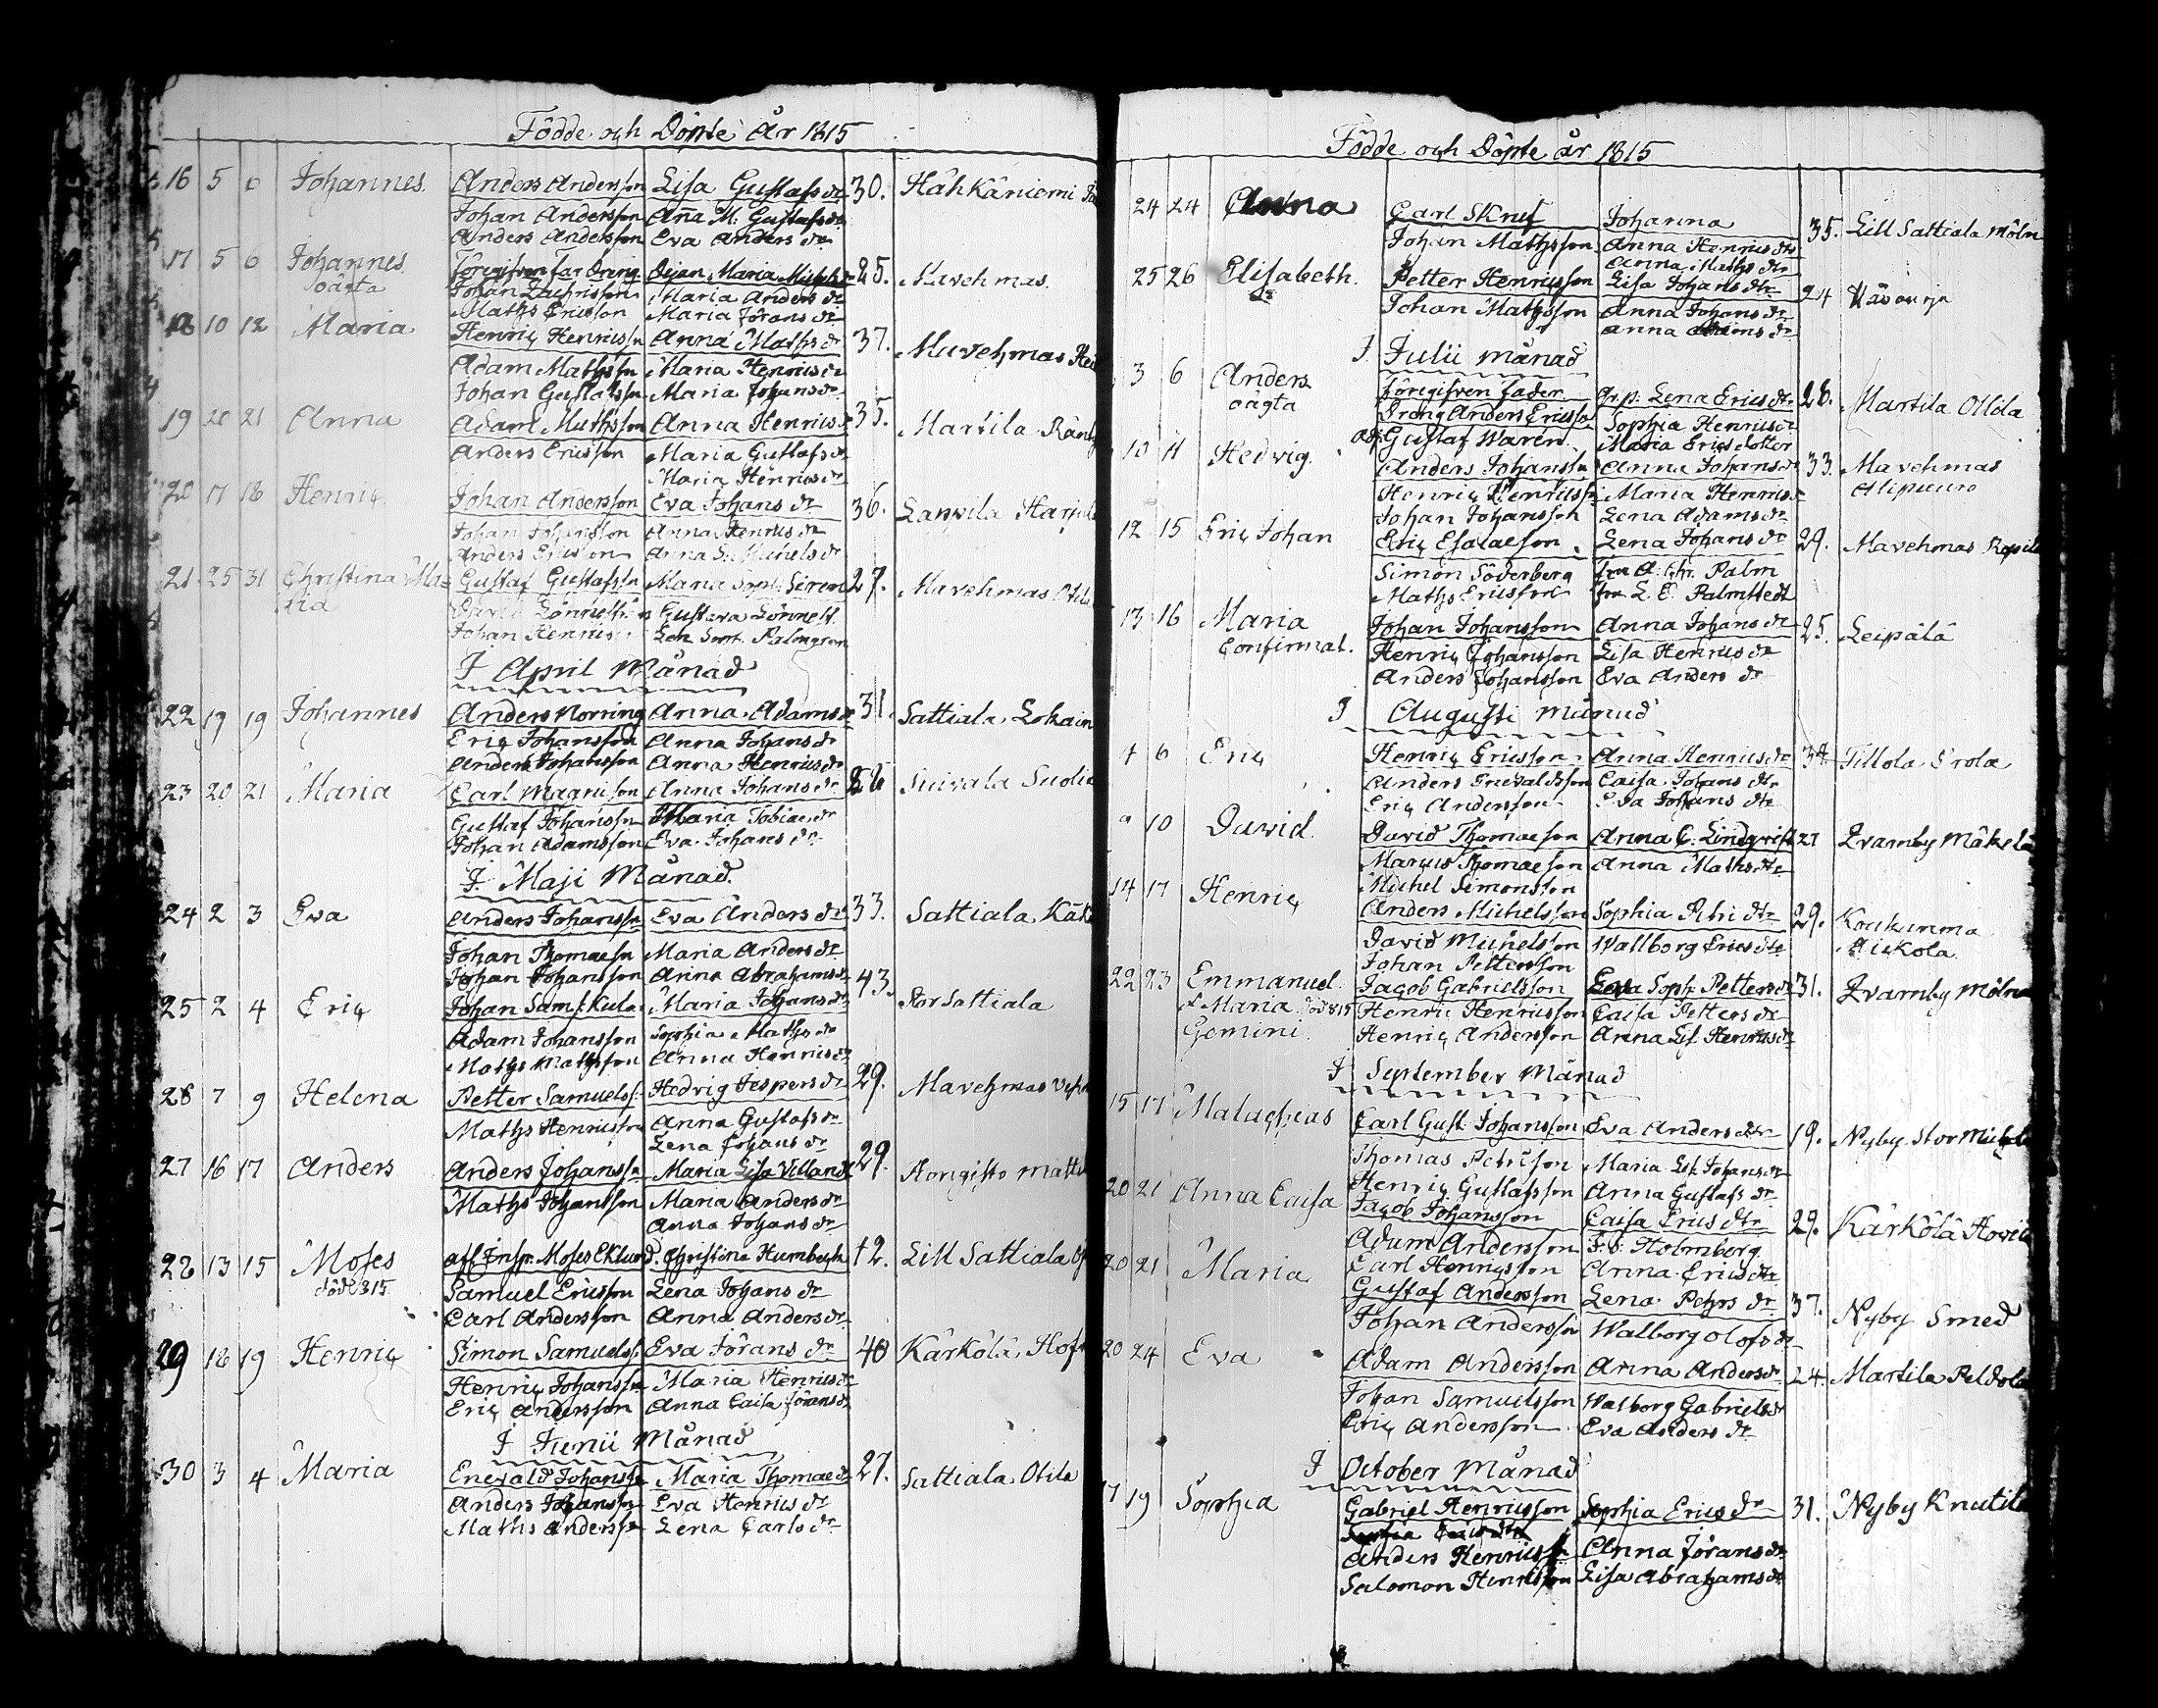 Födde och Döpte År 1815
16 5 6 Johannes. Anders Andersson Lisa Gustafs dr 30. Hähkäniemi
Johan Andersson Aña M. Gustafs dr
Anders Andersson Eva Anders dr
17 5 6 Johannes Föregifven Far Dreng Pigan Maria Michels dr 25. Mavehmas.
oägta Johan Zachrisson Maria Anders dr
Maths Ericsson Maria Jörans dr
18 10 12 Maria Henric Henricsson Anna Maths dr 37. Mavehmas
Adam Mathsson Maria Henrics dr
Johan Gustafsson Maria Johans dr
19 20 21 Anna Adam Mathsson Anna Henrics dr 35. Martila
Anders Ericsson Maria Gustafs dr
Maria Henrics dr
20 17 18 Henric Johan Andersson Eva Johans dr 36. Lanvila
Johan Johansson Anna Henrics dr
Anders Ericsson Anna L. Michels dr
21 25 31 Christina Ma= Gustaf Gustafsson Maria Soph. Siren 27. Mavehmas
ria David Lönnest Gustava Lönnest
Johan Henricss Palmgren
I April Månad
22 19 19 Johannes Anders Norring Anna Adams dr 31. Sattiala Lokain
Eric Johansson Anna Johans dr
Anders Johansson Anna Henrics dr
23 20 21 Maria Carl Magnusson Anna Johans dr 26 Suivala
Gustaf Johansson Maria Tobiae dr
Johan Adamsson Eva Johans dr
I Maji Månad.
24 2 3 Eva Anders Johansson Eva Anders dr 33. Sattiala
Johan Thomaeson Maria Anders dr
Johan Johansson Anna Abrahams dr
25 2 4 Eric Johan Sams: Kula Maria Johans dr 43. Stor Sattiala
Adam Johansson Sophia Maths dr
Maths Mathsson Anna Henrics dr
28 7 9 Helena Petter Samuelss: Hedvig Jespers dr 29. Mavehmas
Maths Henricsson Anna Gustafs dr
Lena Johans dr
27 16 17 Anders Anders Johansson Maria Lisa Villand 29. Hongisto Matti
Maths Johansson Maria Anders dr
Anna Johans dr
28 13 15 Moses afl. Insp. Moses Eklund Christina Humbach 42. Lill Sattiala
död 815. Samuel Ericsson Lena Johans dr
Carl Andersson Anna Anders dr
29 18 19 Henric Simon Samuelss: Eva Jörans dr 40 Kärkölä
Henric Johansson Maria Henrics dr
Eric Andersson Anna Caisa Jörans dr
I Junii Månad
30 3 4 Maria Enevald Johansson Maria Thomae dr 27. Sattiala Otila
Anders Johansson Eva Henrics dr
Maths Andersson Lena Carls dr
Födde och Döpte år 1815
24 24 Anna Carl Skruf Johanna 35. Lill Sattiala Möln
Johan Mathsson Anna Henrics dtr
Anna Maths dtr
25 26 Elisabeth. Petter Henricsson Lisa Johans dtr 24
Johan Mathsson Anna Johans dr
Anna Adams dr
I Julii Månad
3 6 Anders Föregifven fader Lena Erics dtr 28. Martila Ollila
oägta Dreng Anders Ericsson Sophia Henrics dr
Gustaf Waren Maria Erics dotter
10 11 Hedvig. Anders Johansson Anna Johans dr 33. Mavehmas
Henric Henricsson Maria Henrics dr Alipuuro
Johan Johansson Lena Adams dr
12 15 Eric Johan Eric Esaiaeson Lena Johans dr 29. Mavehmas
Simon Söderberg fru A. Chr. Palm
Maths Ericsson fru L. E. Palmstedt
13 16 Maria Johan Johansson Anna Johans dr 25. Leipälä
Confirmat. Henric Johansson Lisa Henrics dr
Anders Johansson Eva Anders dr
I Augusti Månad
4 6 Eric Henric Ericsson Anna Henrics dr 34 Tillola Erola
Anders Enevaldsson Caisa Johans dtr
Eric Andersson Eva Johans dtr
9 10 David. David Thomaeson Anna C. Lindqvist 27 Zvarnby Mäkelä
Marcus Thomaeson Anna Maths dtr
Michel Simonsson
14 17 Henric Anders Michelsson Sophia Petri dtr 29. Koukunma
David Michelsson Wallborg Erics dtr Aickola
Johan Pettersson
22 23 Emmanuel Jacob Gabrielsson Eva Soph. Petters dr 31. Zvarnby Möln
& Maria död 815 Henric Henricsson Caisa Petters dr
Gemini. Henric Andersson Anna Lis. Henrics dr
I September Månad
15 17 Malachias Carl Gust. Johansson Eva Anders dtr 19. Nyby Stor Michel
Thomas Petrison Maria Lis. Johans dr
Henric Gustafsson Anna Gustafs dr
20 21 Anna Caisa Jacob Johansson Caisa Erics dtr 29. Kärkölä
Adam Andersson Holmberg
Carl Henricsson Anna Erics dtr
20 21 Maria Gustaf Andersson Lena Pehrs dr 37. Nyby Smed
Johan Andersson Walborg Olofs dr
20 24 Eva Adam Andersson Anna Anders dr 24. Martila Peldola
Johan Samuelsson Walborg Gabriels dr
Eric Andersson Eva Anders dr
I October Månad
17 19 Sophia Gabriel Henricsson Sophia Erics dr 31. Nyby Knutila
Anders Henricsson Anna Jörans dr
Salomon Henricsson Lisa Abrahams dr